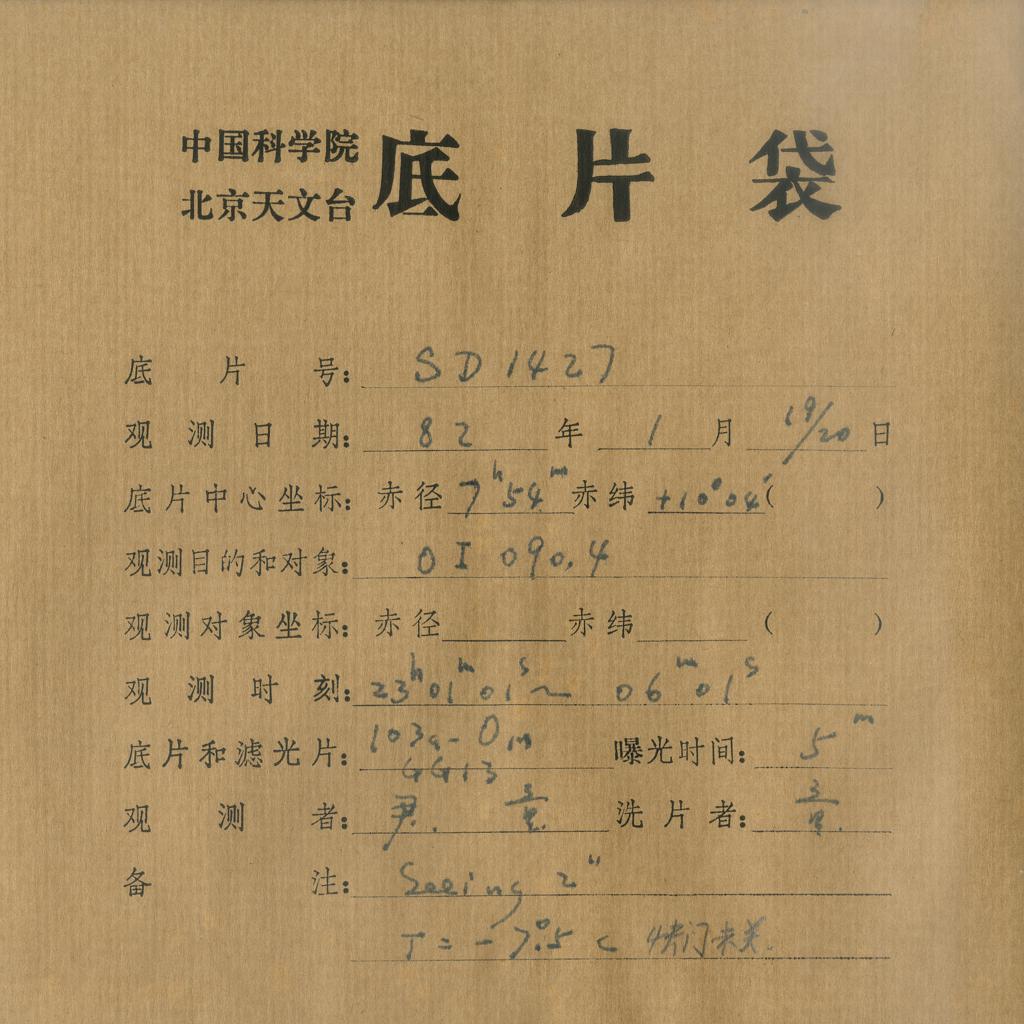 中国科学院
北京天文台
底片袋
底片号: SD1427
观测日期: 82年1月19/20日
底片中心坐标: 赤径 7h54m 赤纬 +10°04′( )
观测目的和对象: OI 090.4
观测对象坐标: 赤径 赤纬 ( )
观测时刻: 23h01m01s~ 06m01s
底片和滤光片: 103a-O 曝光时间: 5m
GG13
观测者: 尹. 洗片者:
备注: Seeing 2"
T = -7°.5 C 快门未关.